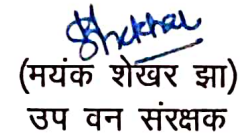 Shekhar
(मयंक शेखर झा)
उप वन संरक्षक